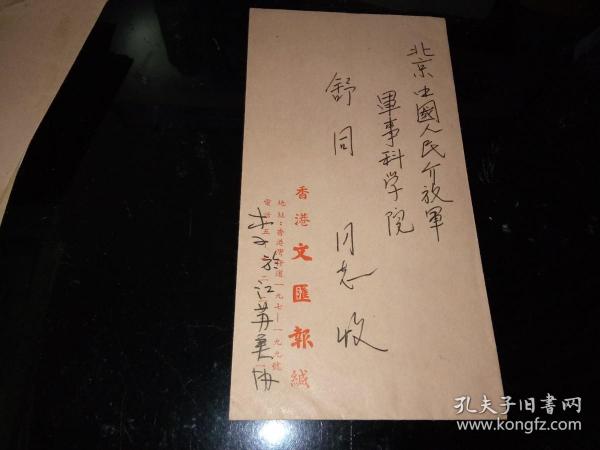 北京中國人民介放軍
軍事科学院
舒同 同志收
香港文匯報緘
地址：香港灣仔道一九七—一九九號
於江苏美协
孔夫子旧书网
www.kongfz.com